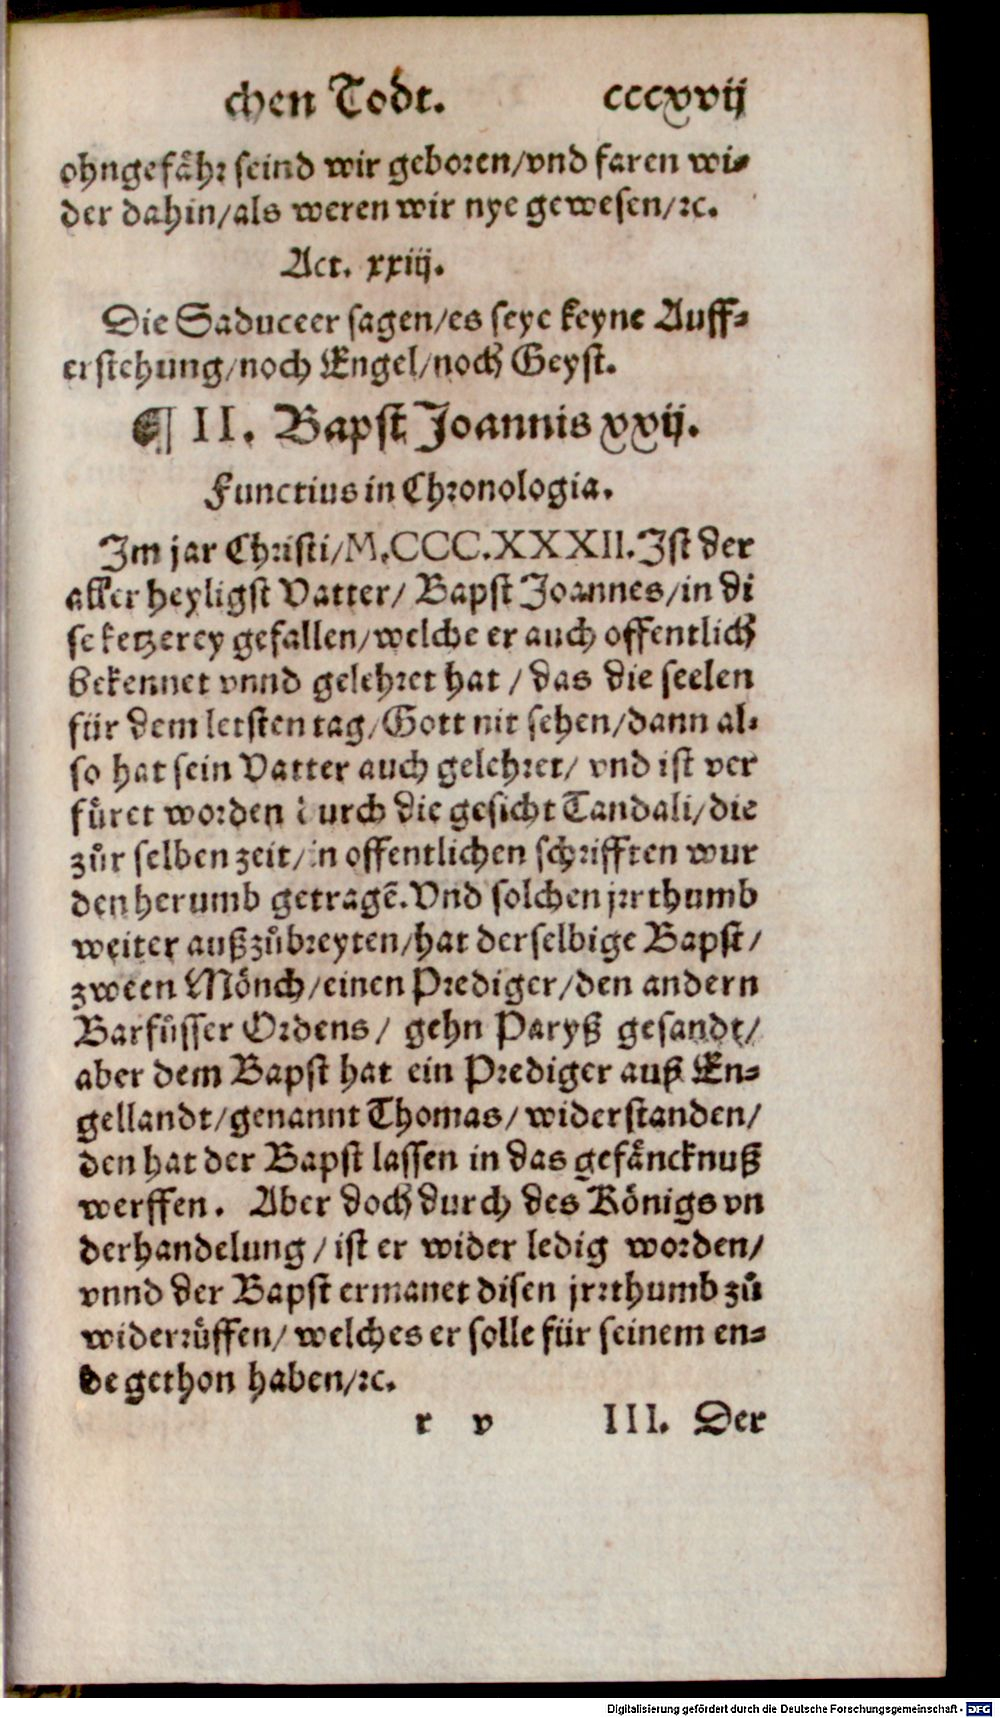 chen Todt. cccxvij
ohngefåhr seind wir geboren/vnd faren wi-
der dahin/als weren wir nye gewesen/ꝛc.
Act. xxiij.
Die Saduceer sagen/es seye keyne Auff-
erstehung/noch Engel/noch Geyst.
¶ II. Bapst Joannis xxij.
Functius in Chronologia.
Im jar Christi/M.CCC.XXXII. Ist der
aller heyligst Vatter/ Bapst Joannes/in di
se ketzerey gefallen/welche er auch offentlich
bekennet vnnd gelehret hat / das die seelen
für dem letsten tag/Gott nit sehen/dann al-
so hat sein Vatter auch gelehret/ vnd ist ver
fůret worden durch die gesicht Tandali/die
zůr selben zeit/in offentlichen schrifften wur
den herumb getragē. Vnd solchen jrrthumb
weiter außzůbreyten/hat derselbige Bapst/
zween Mönch/einen Prediger/den andern
Barfůsser Ordens/ gehn Paryß gesandt/
aber dem Bapst hat ein Prediger auß En-
gellandt/genannt Thomas/widerstanden/
den hat der Bapst lassen in das gefåncknuß
werffen. Aber doch durch des Königs vn
derhandelung / ist er wider ledig worden/
vnnd der Bapst ermanet disen jrrthumb zů
widerrůffen/ welches er solle für seinem en-
de gethon haben/ꝛc.
r v III. Der
Digitalisierung gefördert durch die Deutsche Forschungsgemeinschaft - DFG